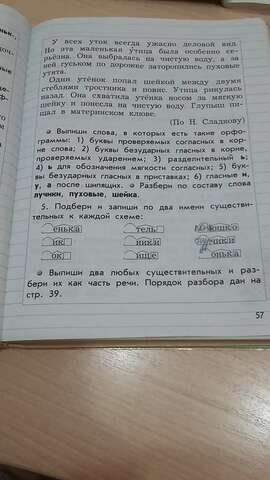 У всех уток всегда ужасно деловой вид.
Но эта маленькая у́тица была особенно се-
рьёзна. Она выбралась на чистую воду, а за
ней гуськом по дорожке заторопились пуховые
утята.
Один утёнок попал шейкой между двумя
стеблями тростника и повис. Утица ринулась
назад. Она схватила утёнка носом за мягкую
шейку и понесла на чистую воду. Глупыш пи-
щал в материнском клюве.
(По Н. Сладкову)
Выпиши слова, в которых есть такие орфо-
граммы: 1) буквы проверяемых согласных в кор-
не слова; 2) буквы безударных гласных в корне,
проверяемых ударением; 3) разделительный ь;
4) ь для обозначения мягкости согласных; 5) бук-
вы безударных гласных в приставках; 6) гласные и,
у, а после шипящих. Разбери по составу слова
лучники, пуховые, шейка.
5. Подбери и запиши по два имени существи-
тельных к каждой схеме:
еньк а тель ышк о
ик ник и чик и
ок ищ е оньк а
Выпиши два любых существительных и раз-
бери их как часть речи. Порядок разбора дан на
стр. 39.
57